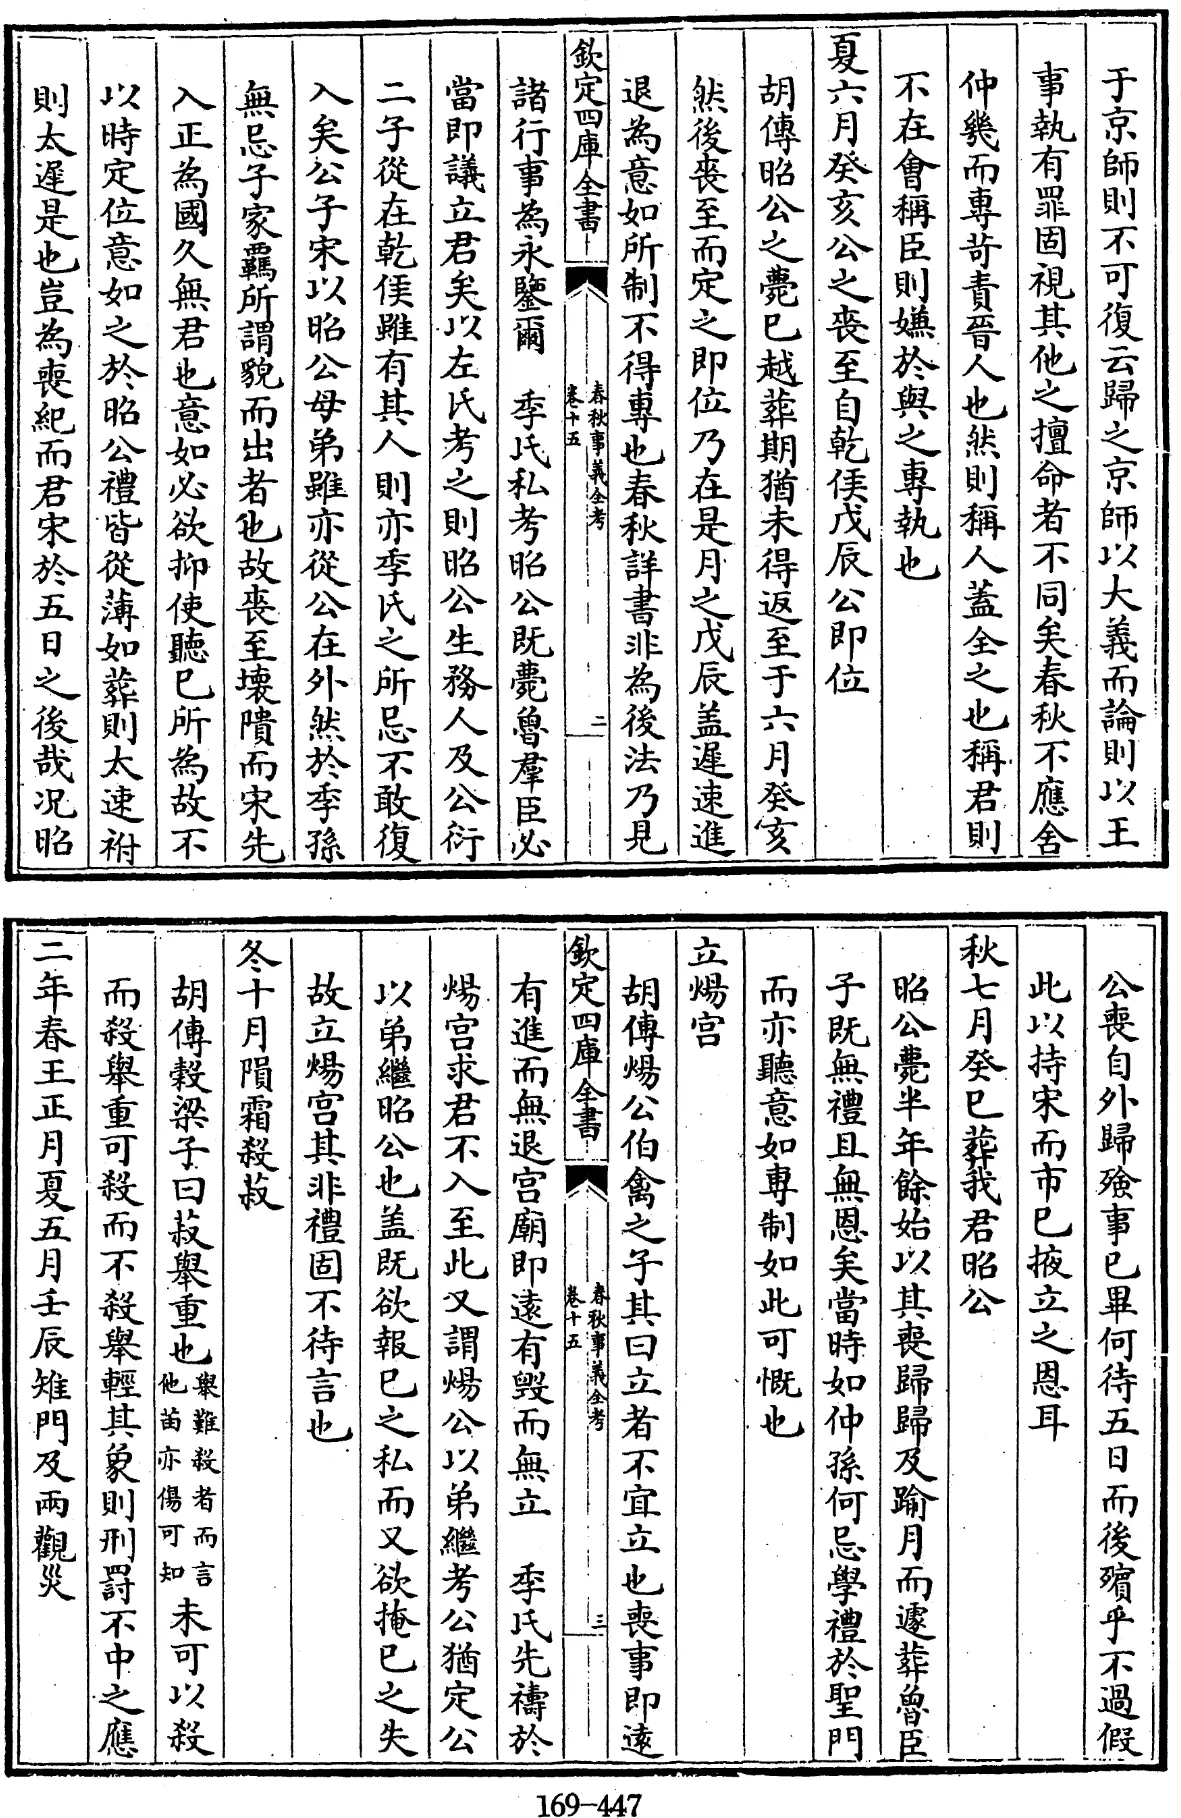 于京師則不可復云歸之京師以大義而論則以王
事執有罪固視其他之擅命者不同矣春秋不應舍
仲幾而專苛責晉人也然則稱人蓋全之也稱君則
不在會稱臣則嫌於與之專執也
夏六月癸亥公之喪至自乾侯戊辰公即位
胡傳昭公之薨已越葬期猶未得返至于六月癸亥
然後喪至而定之即位乃在是月之戊辰盖遲速進
退為意如所制不得專也春秋詳書非為後法乃見
欽定四庫全書
春秋事義全考
卷十五
二
諸行事為永鑒爾　季氏私考昭公既薨魯羣臣必
當即議立君矣以左氏考之則昭公生務人及公衍
二子從在乾侯雖有其人則亦季氏之所忌不敢復
入矣公子宋以昭公母弟雖亦從公在外然於季孫
無忌子家羈所謂貌而出者也故喪至壞隤而宋先
入正為國久無君也意如必欲抑使聽已所為故不
以時定位意如之於昭公禮皆從薄如葬則太速祔
則太遲是也豈為喪紀而君宋於五日之後哉况昭
公喪自外歸殮事已畢何待五日而後殯乎不過假
此以持宋而市已掖立之恩耳
秋七月癸巳葬我君昭公
昭公薨半年餘始以其喪歸歸及踰月而遽葬魯臣
子既無禮且無恩矣當時如仲孫何忌學禮於聖門
而亦聽意如專制如此可慨也
立煬宫
胡傳煬公伯禽之子其曰立者不宜立也喪事即逺
欽定四庫全書
春秋事義全考
卷十五
三
有進而無退宫廟即遠有毁而無立　季氏先禱於
煬宫求君不入至此又謂煬公以弟繼考公猶定公
以弟繼昭公也盖既欲報已之私而又欲掩已之失
故立煬宫其非禮固不待言也
冬十月隕霜殺菽
胡傳穀梁子曰菽舉重也舉難殺者而言他苗亦傷可知未可以殺
而殺舉重可殺而不殺舉輕其象則刑罰不中之應
二年春王正月夏五月壬辰雉門及兩觀災
169-447